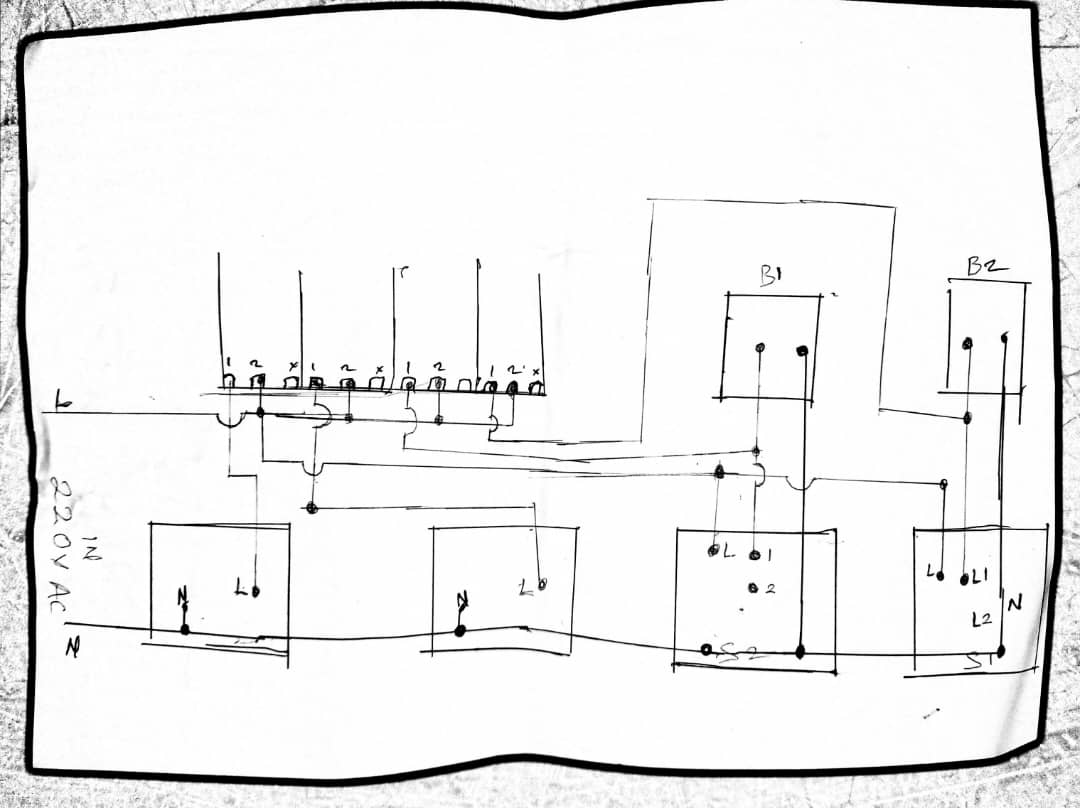 B1
B2
1 2 x 1 2 x 1 2 1 2 x
L
220V AC
IN
N
N L
N L
L 1
2
S2
L L1
L2 N
S1